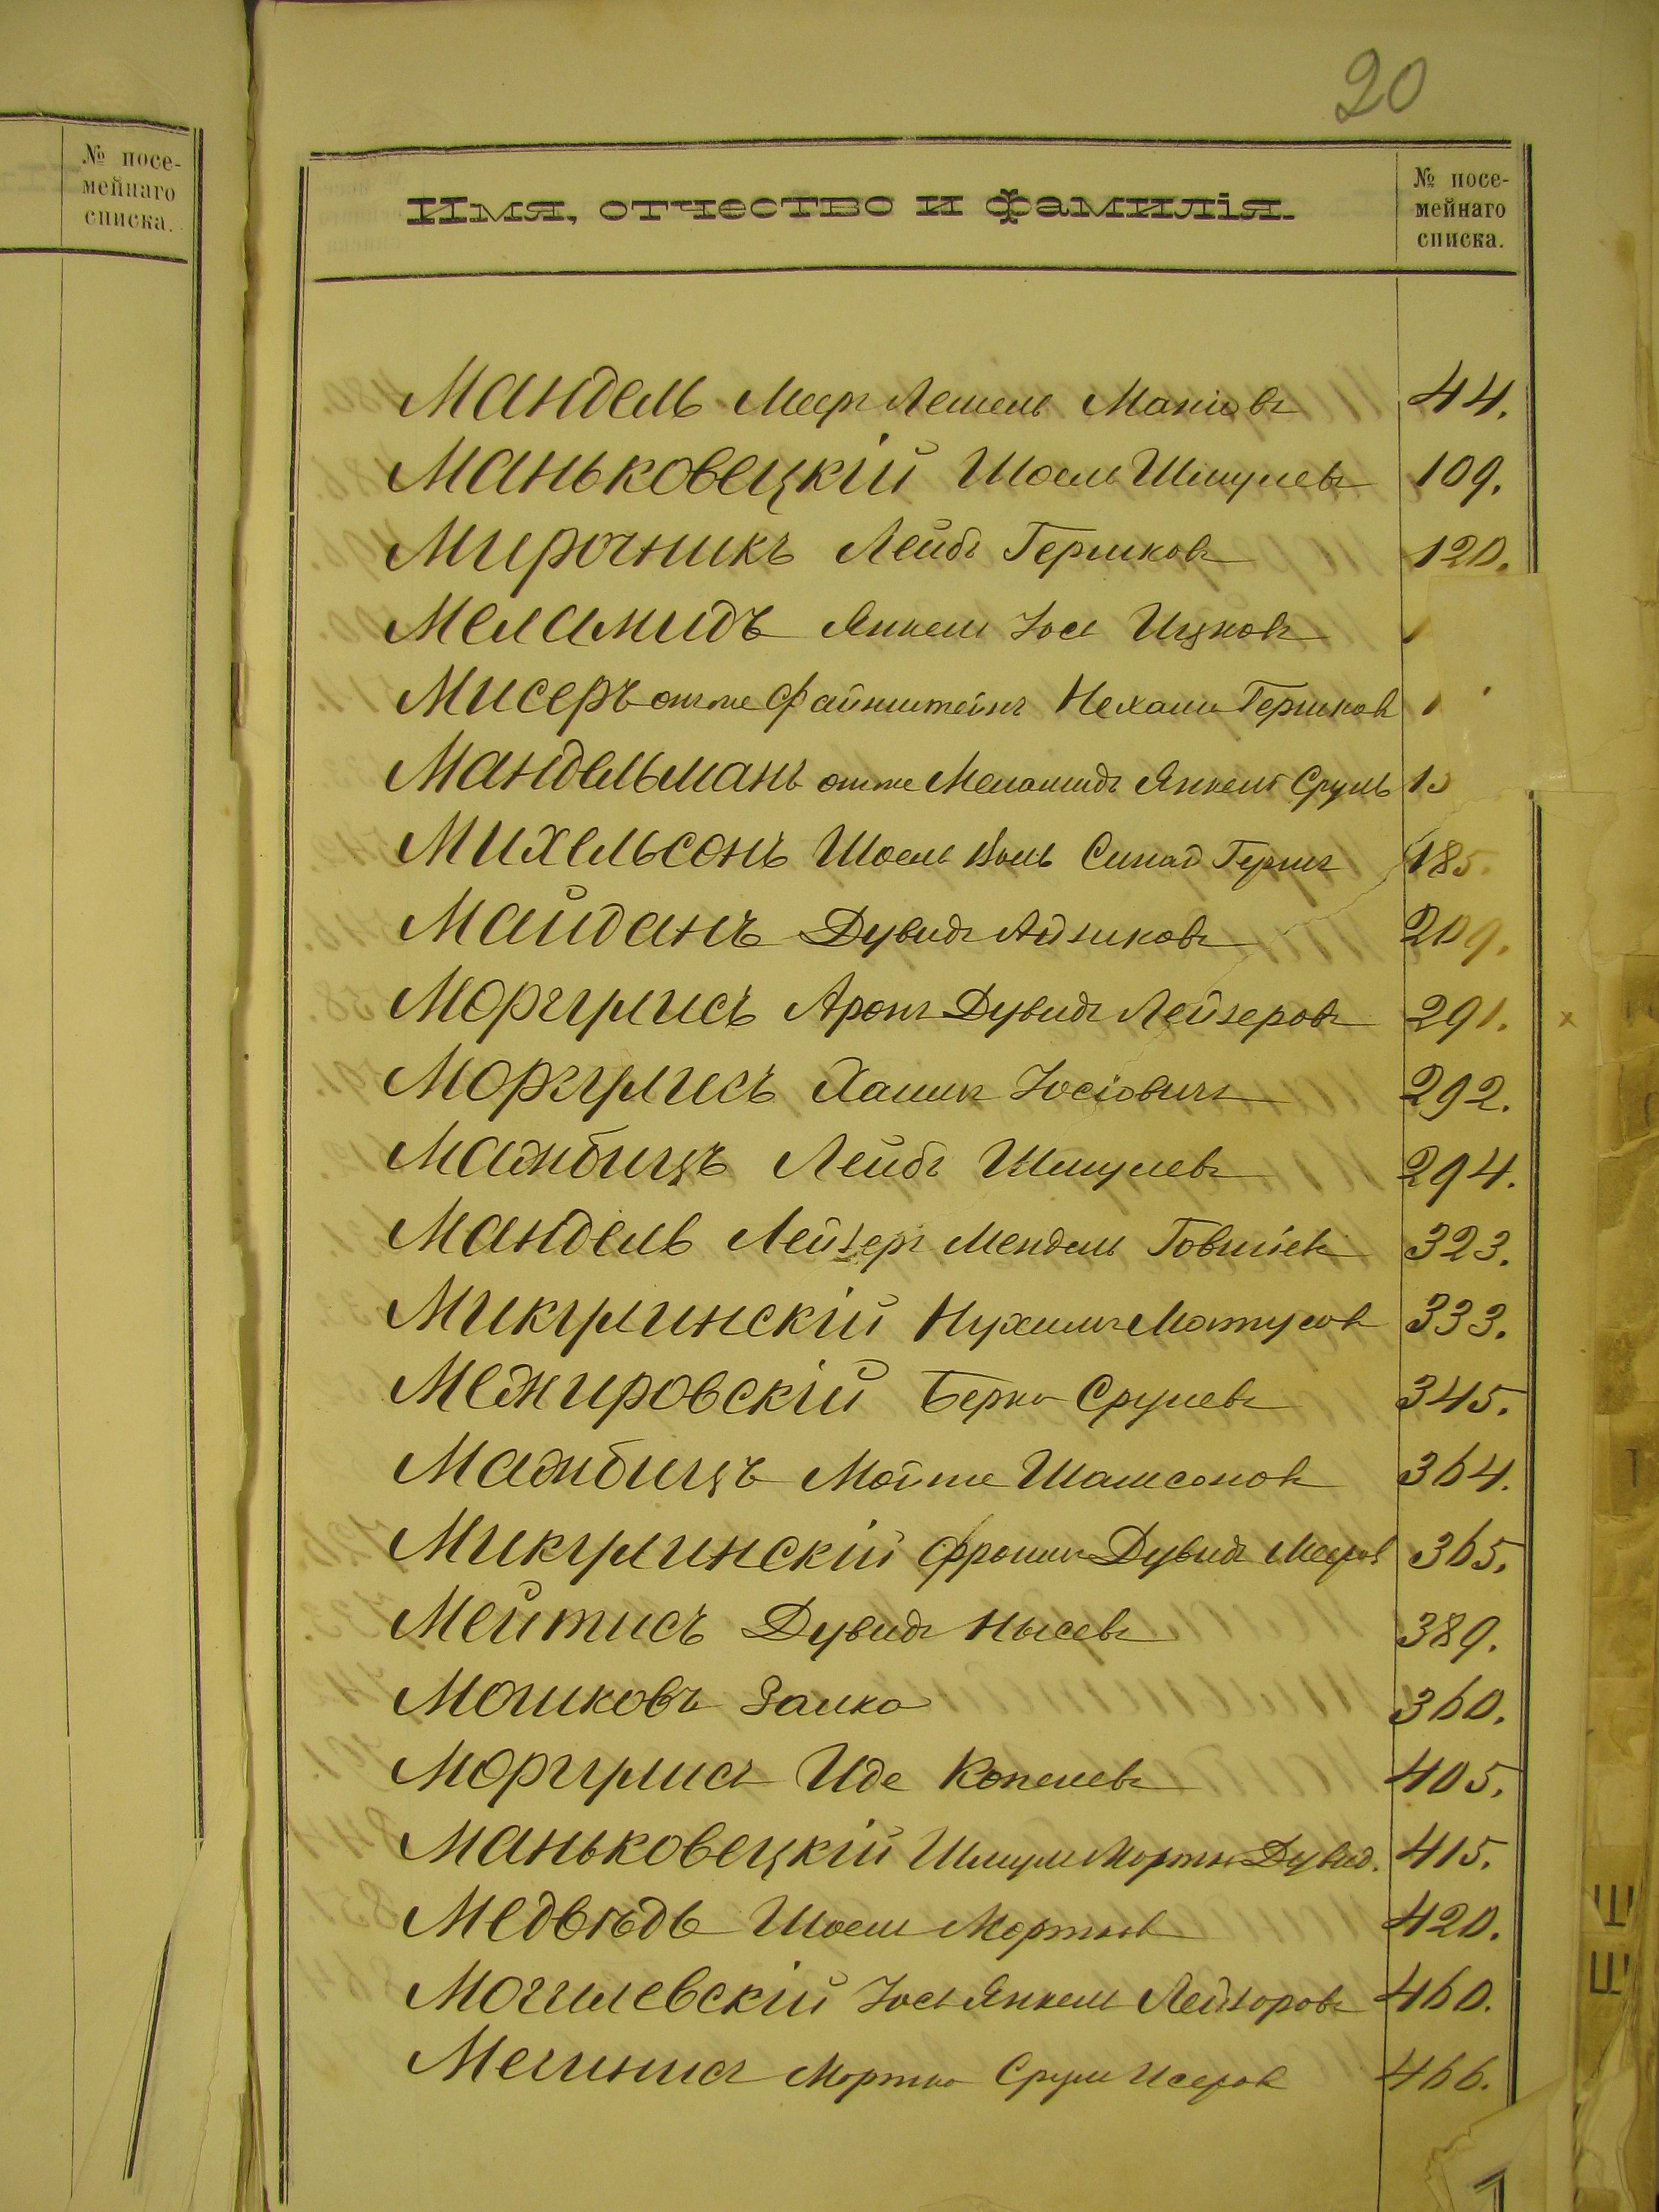 20
№ посе-
мейнаго
списка.
Имя, отчество и фамилія.
№ посе-
мейнаго
списка.
Мандель Меер Лейзель 44.
Маньковецкій Шоель Шмулевъ 109.
Мирочникъ Лейбъ Гершковъ 120.
Меламидъ Янкель Іосъ Ицковъ
Мисеръ онже Файнштейнъ Нехаим Гершков
Мандельманъ онже Меламидъ Янкель Сруль
Михельсонъ Шоель Синай Гершъ 185.
Майданъ Дувидъ Айзиковъ 209.
Моргулисъ Аронъ Дувидъ Лейзеровъ 291.
Моргулисъ Хаимъ Іосіовичъ 292.
Мажбицъ Лейбъ Шмулевъ 294.
Мандель Лейзеръ Мендель Говшіев 323.
Микулинскій Нухимъ Матусов 333.
Межировскій Берко Срулевъ 345.
Мажбицъ Мойше Шамсонов 364.
Микулинскій Фроимъ Дувидъ Мееров 365.
Мейтисъ Дувидъ Нысевъ 389.
Мошковъ Заико 360.
Моргулисъ Иде Копелевъ 405.
Маньковецкій Шмуль Мортко Дувид. 415.
Медвѣдь Шоель Мортков 420.
Могилевскій Іосъ Янкель Лейзоровъ 460.
Мортко Сруль Исеров 466.